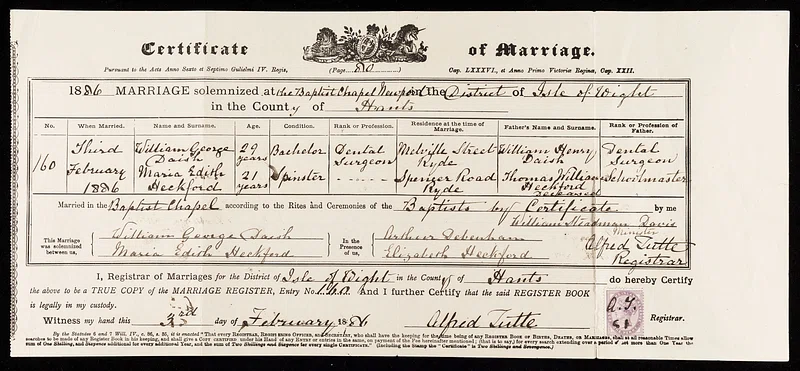 Certificate of Marriage.
Pursuant to the Acts Anno Sexto et Septimo Gulielmi IV. Regis, (Page 80) Cap. LXXXVI., et Anno Primo Victoriæ Reginæ, Cap. XXII.
1886 MARRIAGE solemnized at the Baptist Chapel Newport in the District of Isle of Wight
in the County of Hants
No. When Married. Name and Surname. Age. Condition. Rank or Profession. Residence at the time of Marriage. Father's Name and Surname. Rank or Profession of Father.
160 Third February 1886
William George Daish 29 years Bachelor Dental Surgeon Melville Street Ryde William Henry Daish Dental Surgeon
Maria Edith Heckford 21 years Spinster Spencer Road Ryde Thomas William Heckford deceased Schoolmaster
Married in the Baptist Chapel according to the Rites and Ceremonies of the Baptists by Certificate by me
William Steadman Davis
Minister
This Marriage was solemnized between us,
William George Daish
Maria Edith Heckford
In the Presence of us,
Arthur Debenham
Elizabeth Heckford
Alfred Tutte
Registrar
I, Registrar of Marriages for the District of Isle of Wight in the County of Hants do hereby Certify
the above to be a TRUE COPY of the MARRIAGE REGISTER, Entry No. 160 And I further Certify that the said REGISTER BOOK
is legally in my custody.
Witness my hand this 3rd day of February 1886 Alfred Tutte Registrar.
A.T.
By the Statutes 6 and 7 Will. IV., c. 86, s. 35, it is enacted "That every RECTOR, REGISTRAR, shall have the keeping for the time being of any REGISTER BOOK OF BIRTHS, DEATHS, OR MARRIAGES, shall at all reasonable Times allow
searches to be made of any Register Book in his keeping, and shall give a COPY certified under his Hand of any ENTRY or ENTRIES in the same, on payment of the Fee hereinafter mentioned; (that is to say,) for every search extending over a period not more than One Year the
sum of One Shilling, and Sixpence additional for every additional Year, and the Sum of Two Shillings and Sixpence for every single CERTIFICATE." (Including the Stamp the "Certificate" is Two Shillings and Sevenpence.)